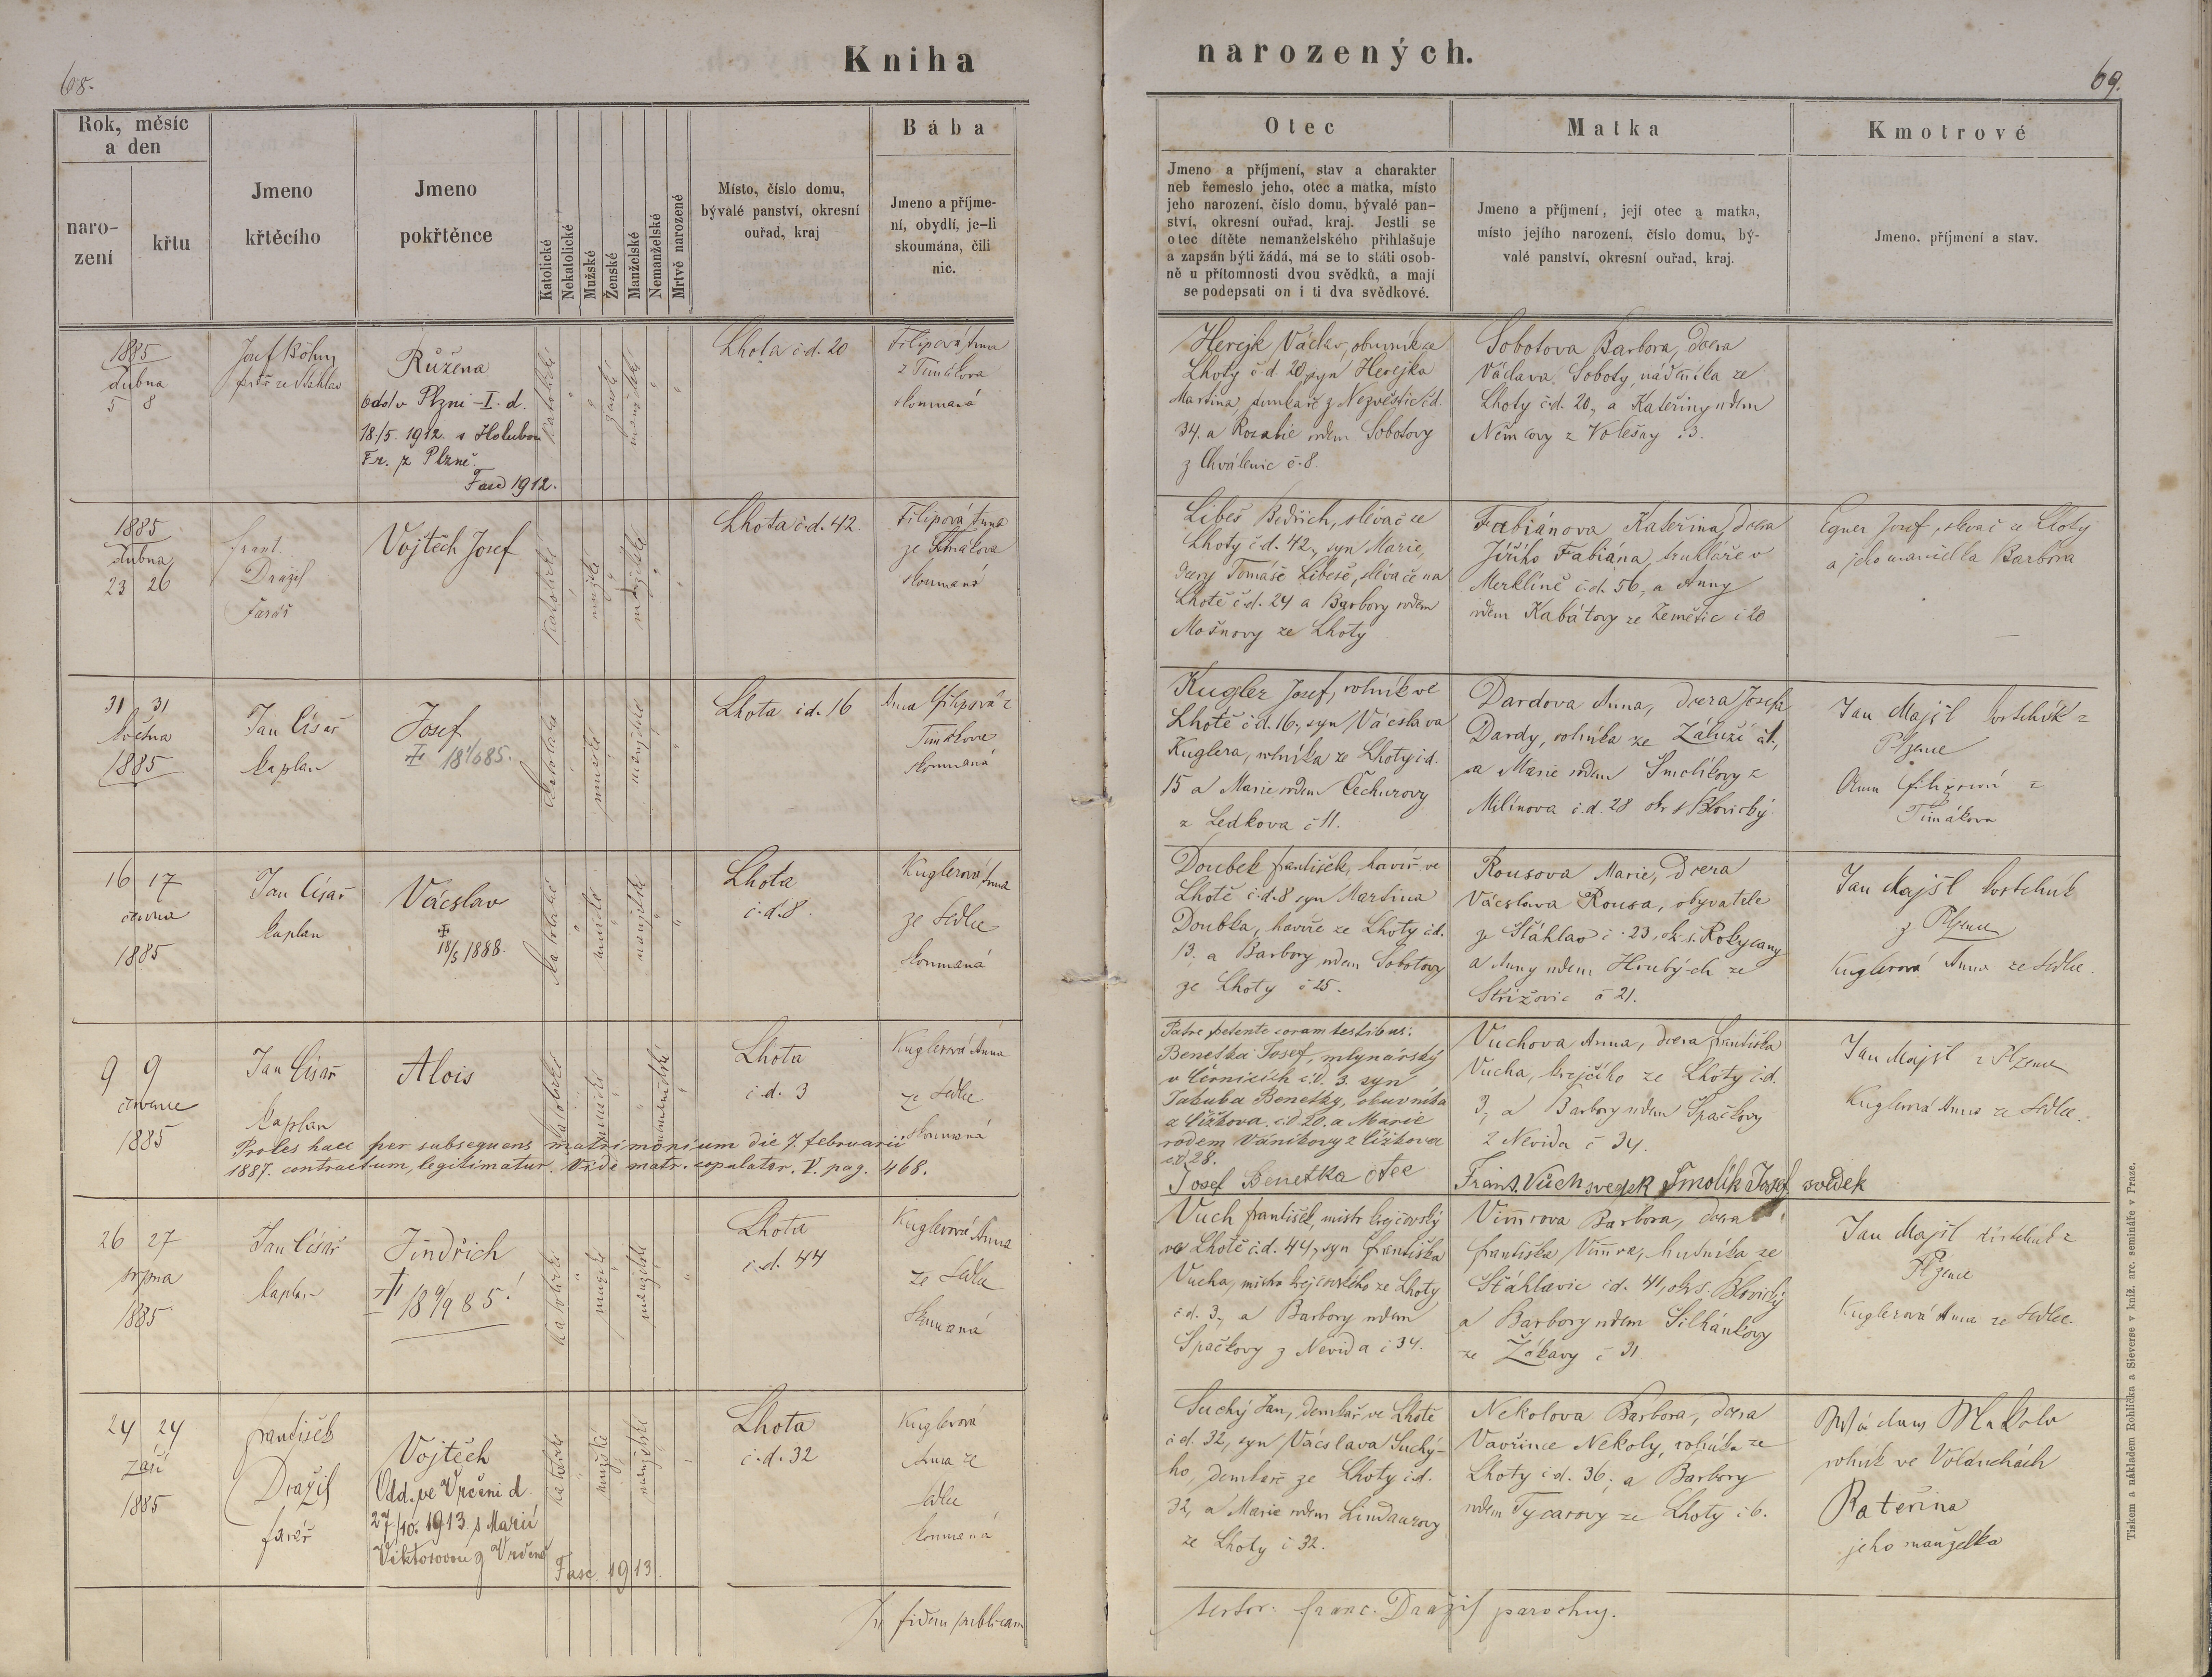 68.
Kniha
narozených.
69.
Rok, měsíc
a den
naro-
zení
křtu
Jmeno
křtěcího
Jmeno
pokřtěnce
Katolické
Nekatolické
Mužské
Ženské
Manželské
Nemanželské
Mrtvě narozené
Místo, číslo domu,
bývalé panství, okresní
ouřad, kraj
Bába
Jmeno a příjme-
ní, obydlí, je-li
skoumána, čili
nic.
Otec
Jmeno a příjmení, stav a charakter
neb řemeslo jeho, otec a matka, místo
jeho narození, číslo domu, bývalé pan-
ství, okresní ouřad, kraj. Jestli se
otec dítěte nemanželského přihlašuje
a zapsán býti žádá, má se to státi osob-
ně u přítomnosti dvou svědků, a mají
se podepsati on i ti dva svědkové.
Matka
Jmeno a příjmení, její otec a matka,
místo jejího narození, číslo domu, bý-
valé panství, okresní ouřad, kraj.
Kmotrové
Jmeno, příjmení a stav.
1885
dubna
5 8
Josef Böhm
Růžena
odd. v Plzni - I. d.
18/5. 1912. s Holubem
Fr. z Plzně.
Fasc 1912.
katolické
ženské
manželské
Lhota č.d. 20
Filipová Anna
z Timákova
skoumaná
Herejk Václav, obuvník ze
Lhoty č.d. 20, syn Herejka
Martina, z Nezvěstic č.d.
34. a Rozalie rodem Sobotovy
z Chválenic č. 8.
Sobotova Barbora, dcera
Václava Soboty, nádeníka ze
Lhoty č.d. 20, a Kateřiny rodem
Němcovy z č 3.
1885
dubna
23 26
Frant.
Dražil
Farář
Vojtěch Josef
katolické
mužské
manželské
Lhota č.d. 42.
Filipová Anna
ze Timákova
skoumaná
Libeš Bedřich, slévač ze
Lhoty č.d. 42, syn Marie,
dcery Tomáše Libeše, slévače na
Lhotě č.d. 24 a Barbory rodem
Mošnovy ze Lhoty
Fabiánova Kateřina, dcera
Jiřího Fabiána, truhláře v
Merklíně č.d. 56, a Anny
rodem Kabátovy ze Zemětic č 20
Egner Josef, slevač ze Lhoty
a jeho manželka Barbora
31 31
května
1885
Jan Císař
kaplan
Josef
katolické
mužské
manželské
Lhota č.d. 16
Anna Filipová z
Timákova
skoumaná
Kugler Josef, rolník ve
Lhotě č.d. 16, syn Vácslava
Kuglera, rolníka ze Lhoty č.d.
15 a Marie rodem Čechurovy
z Ledkova č 11.
Dardova Anna, dcera Josefa
Dardy, rolníka ze Záluží č 1.,
a Marie rodem Smolíkovy z
Milínova č.d. 28 okr. s. Blovický.
Jan Majšl kostelník z
Plzence
Anna Filipová z
Timákova
16 17
června
1885
Jan Císař
kaplan
Vácslav
18/5 1888.
katolické
mužské
manželské
Lhota
č.d. 8.
Kuglerová Anna
ze Sedlce
skoumaná
Doubek František, havíř ve
Lhotě č.d. 8 syn Martina
Doubka, havíře ze Lhoty č.d.
13, a Barbory rodem Sobotovy
ze Lhoty č 25.
Rousova Marie, dcera
Vácslava Rousa, obyvatele
ze Šťáhlav č. 23, ok. s. Rokycany
a Anny rodem Hrubých ze
Střížovic č 21.
Jan Majšl kostelník
z Plzence
Kuglerová Anna ze Sedlce.
9 9
července
1885
Jan Císař
kaplan
Alois
katolické
mužské
nemanželské
Lhota
č.d. 3
Kuglerová Anna
ze Sedlce
skoumaná
Proles haec per subsequens matrimonium die 7. februarii
1887. contractum, legitimatur. Vide matr. copulator. V. pag. 468.
Patre petente coram testibus:
Benetka Josef, mlynářský
v Černicích č.d. 3. syn
Jakuba Benetky, obuvníka
z Čížkova č.d 20. a Marie
rodem Váníkovy z Čížkova
č.d. 28.
Josef Benetka otec
Vuchova Anna, dcera Františka
Vucha, krejčího ze Lhoty č.d.
3, a Barbory rodem Špačkovy
z Nevida č 34.
Frant. Vuch svedek Smolík Josef svědek
Jan Majšl z Plzence
Kuglerová Anna ze Sedlce.
26 27
srpna
1885
Jan Císař
kaplan
Jindřich
18 9/9 85!
katolické
mužské
manželské
Lhota
č.d. 44
Kuglerová Anna
ze Sedlce
skoumaná
Vuch František, mistr krejčovský
ve Lhotě č.d. 44, syn Františka
Vucha, mistra krejčovského ze Lhoty
č.d. 3, a Barbory rodem
Špačkovy z Nevida č 34.
Vimrova Barbora, dcera
Františka Vimra, hutníka ze
Šťáhlavic č.d. 41, ok. s. Blovický
a Barbory rodem Silhánkovy
ze Žákavy č 31
Jan Majšl kostelník z
Plzence
Kuglerová Anna ze Sedlce.
24 24
září
1885
František
Dražil
farář
Vojtěch
Odd. ve Vrčeni d.
27/10. 1913 s Marií
Viktorovou z Vrčeně
Fasc. 1913.
katolické
mužské
manželské
Lhota
č.d. 32
Kuglerová
Anna ze
Sedlce
skoumaná
Suchý Jan, demkař ve Lhotě
č.d. 32, syn Vácslava Suché-
ho, demkaře ze Lhoty č.d.
32, a Marie rodem Lindaurovy
ze Lhoty č 32.
Nekolova Barbora, dcera
Vavřince Nekoly, rolníka ze
Lhoty č.d. 36, a Barbory
rodem Tycarovy ze Lhoty č 6.
rolník ve Volduchách
Kateřina
jeho manželka
In fidem publicam
testor. Franc. Dražil parochus.
Tiskem a nákladem Rohlíčka a Sieverse v kníž. arc. semináře v Praze.